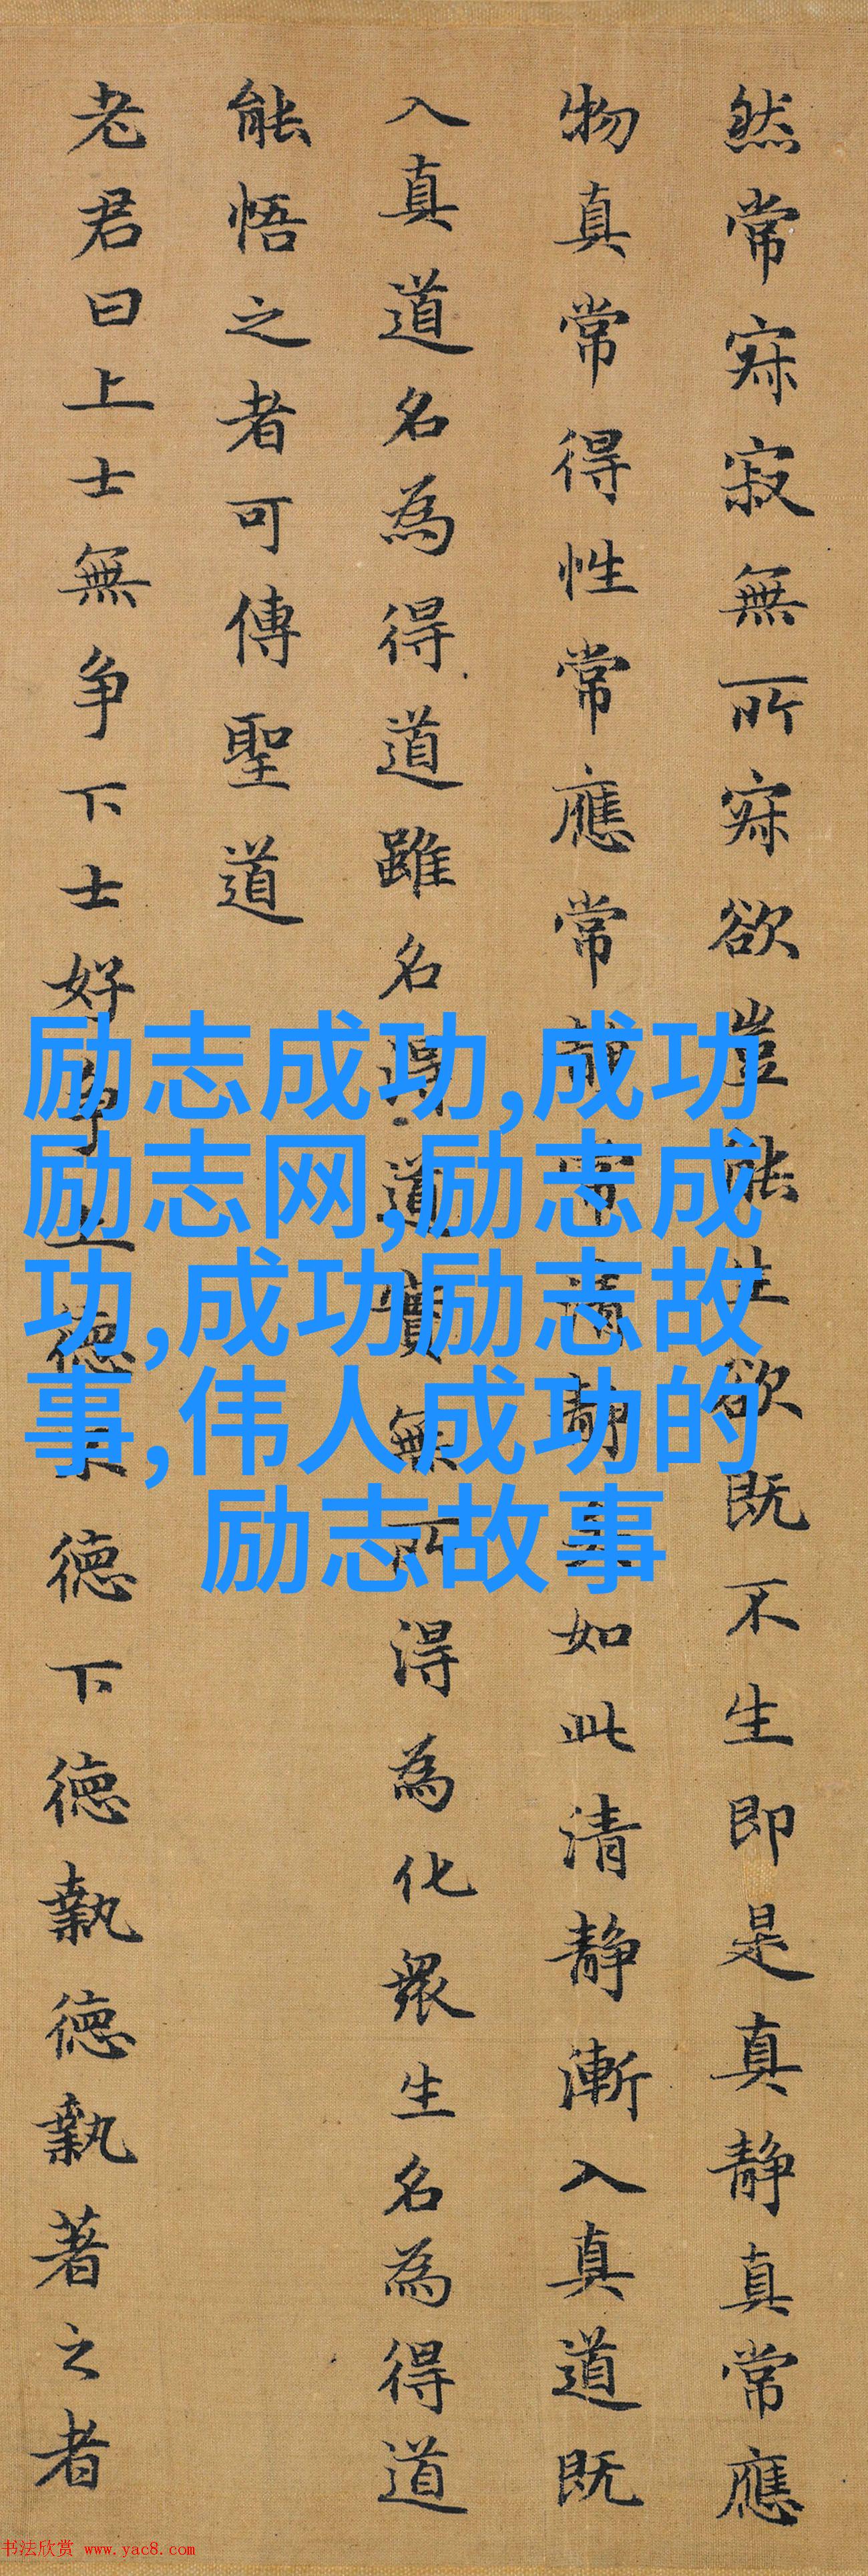 然常寂寂無所寂欲豈能生欲既不生即是真静真常應
物真常得性常應常静常清静矣如此清静漸入真道既
入真道名為得道雖名得道實無所得為化眾生名為得道
能悟之者可傳聖道
老君曰上士無争下士好争上德不德下德執德執著之者
励志成功,成功
励志网,励志成
功,成功励志故
事,伟人成功的
励志故事
书法欣赏 www.yac8.com